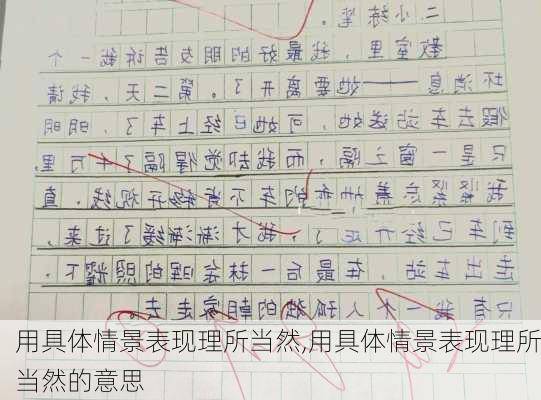 二.小练笔。
教室里，我最好的朋友告诉我一个
坏消息——她要离开了。第二天，我请
假去车站送她，可她已经上车了，明明
只是一窗之隔，而我却觉得隔了千万里。
我紧紧 的车不 移开视线，直
到车已经开走了，我才渐渐缓了过来，
走出车站，在最后一抹余晖的照耀下，
只有我一个人孤独的朝家走去。
用具体情景表现理所当然,用具体情景表现理所
当然的意思